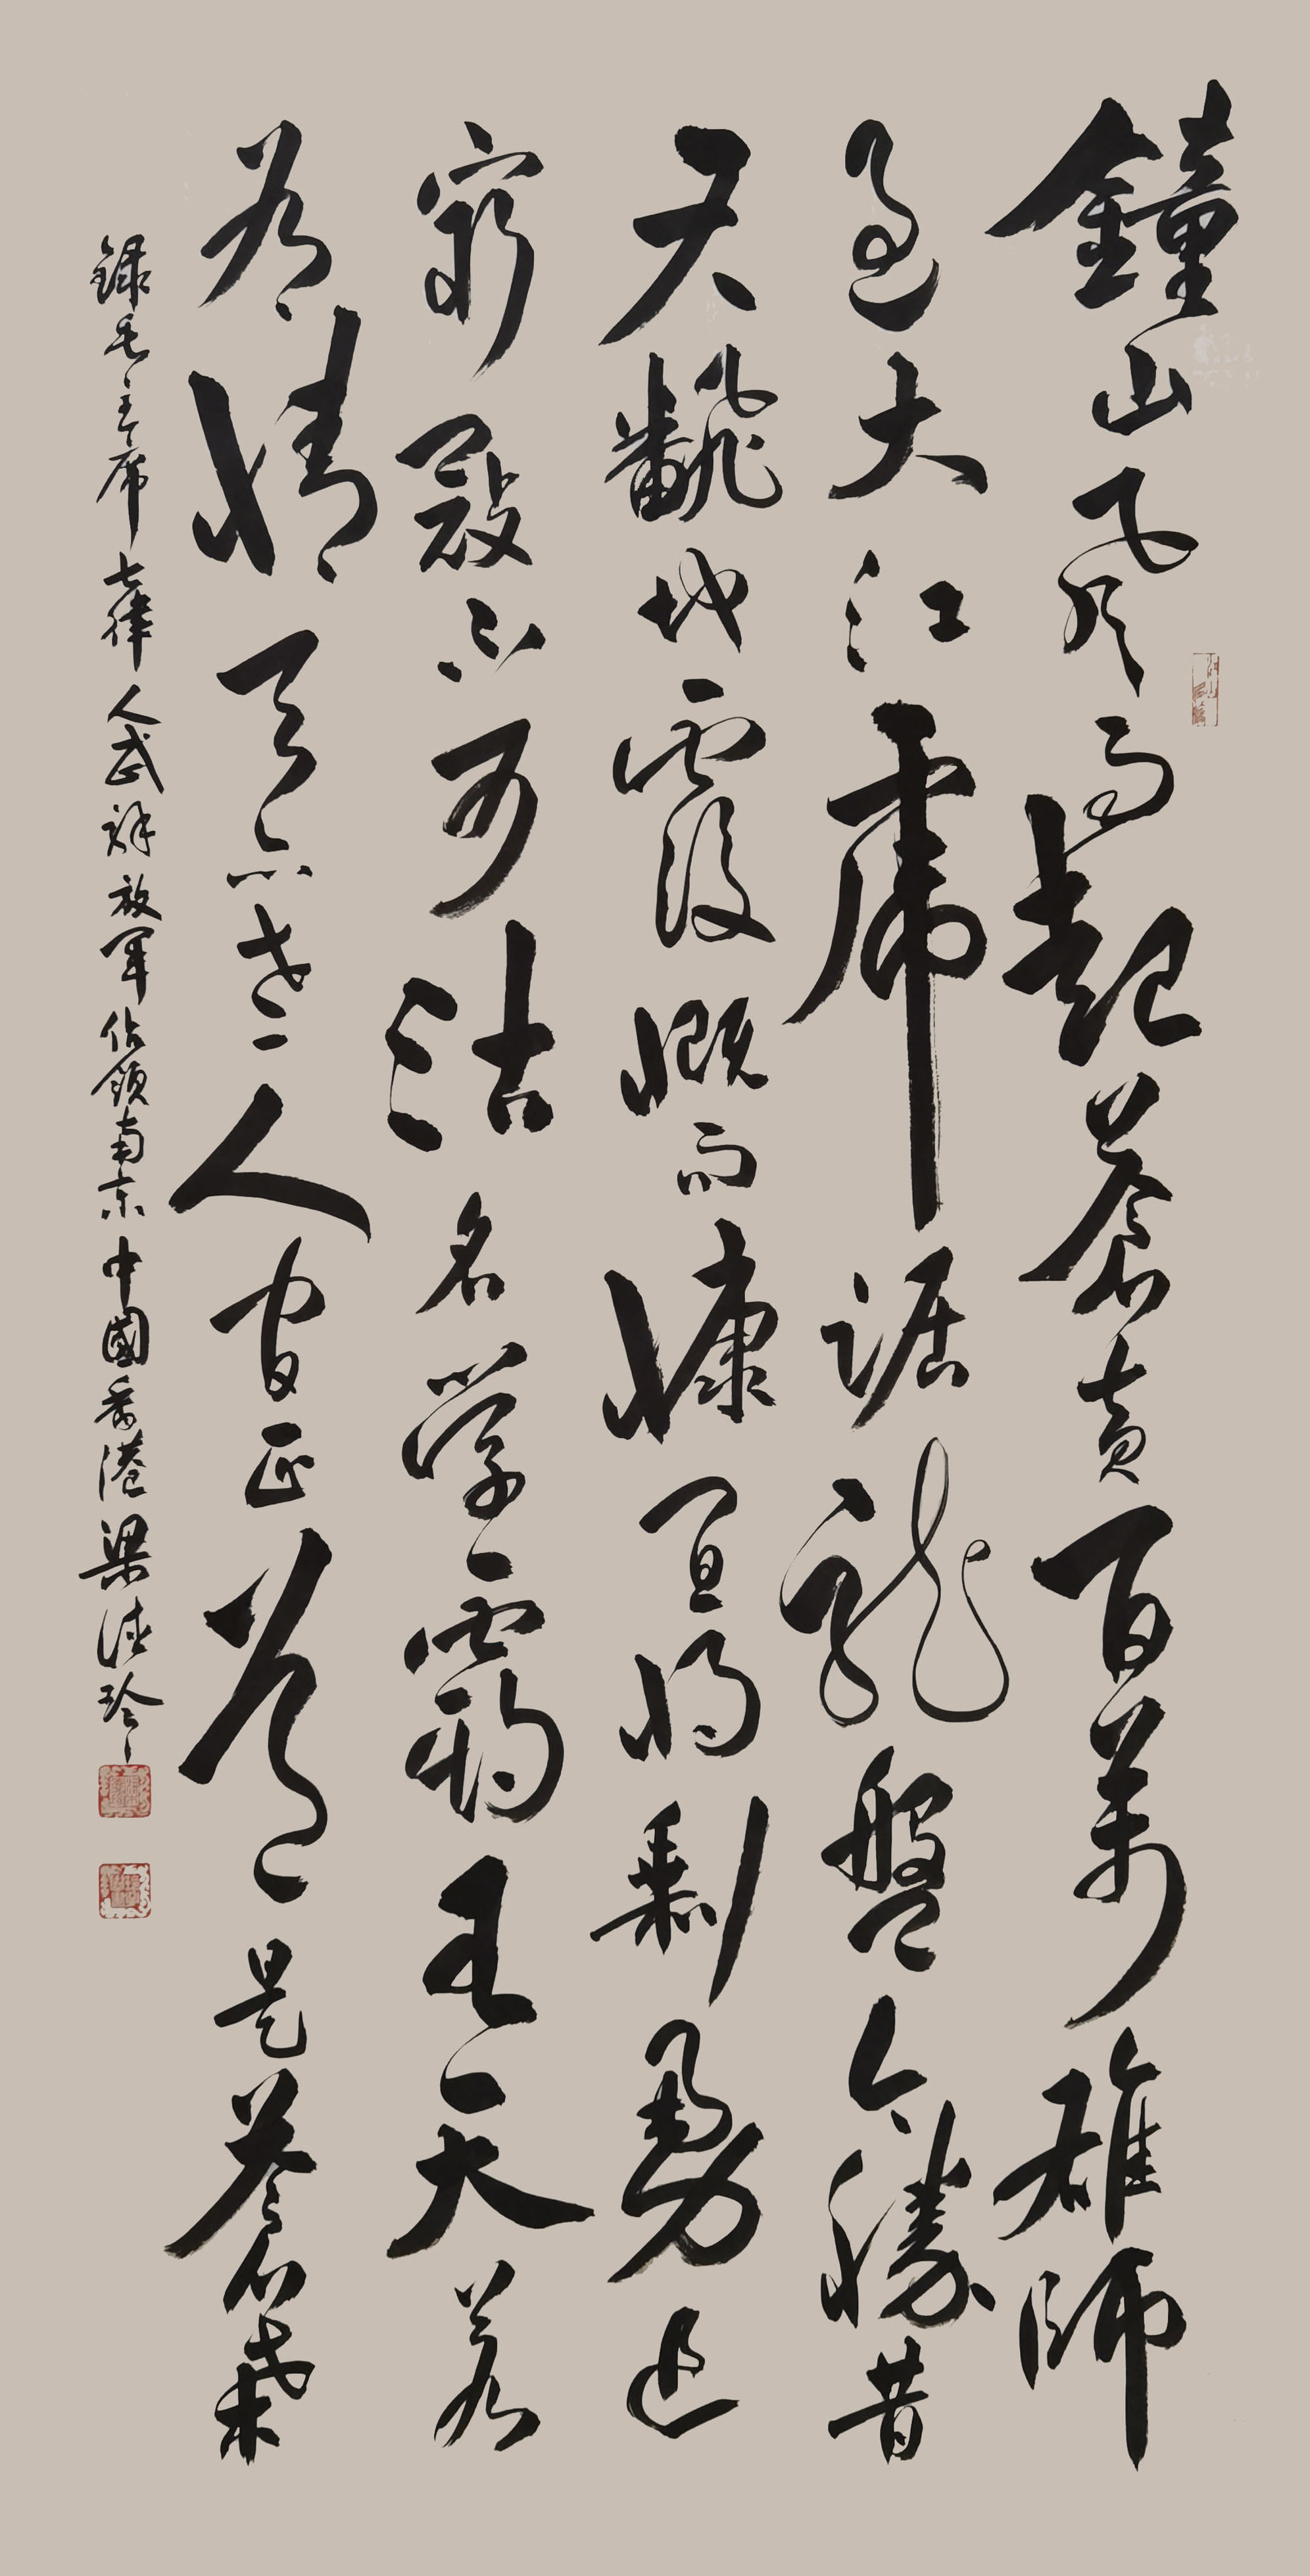 鐘山風雨起蒼黃百萬雄師
過大江虎踞龍盤今勝昔
天飜地覆慨而慷宜將剩勇追
窮寇不可沽名学霸王天若
有情天亦老人間正道是蒼桑
録毛主席七律人民解放軍佔領南京中國香港梁玲